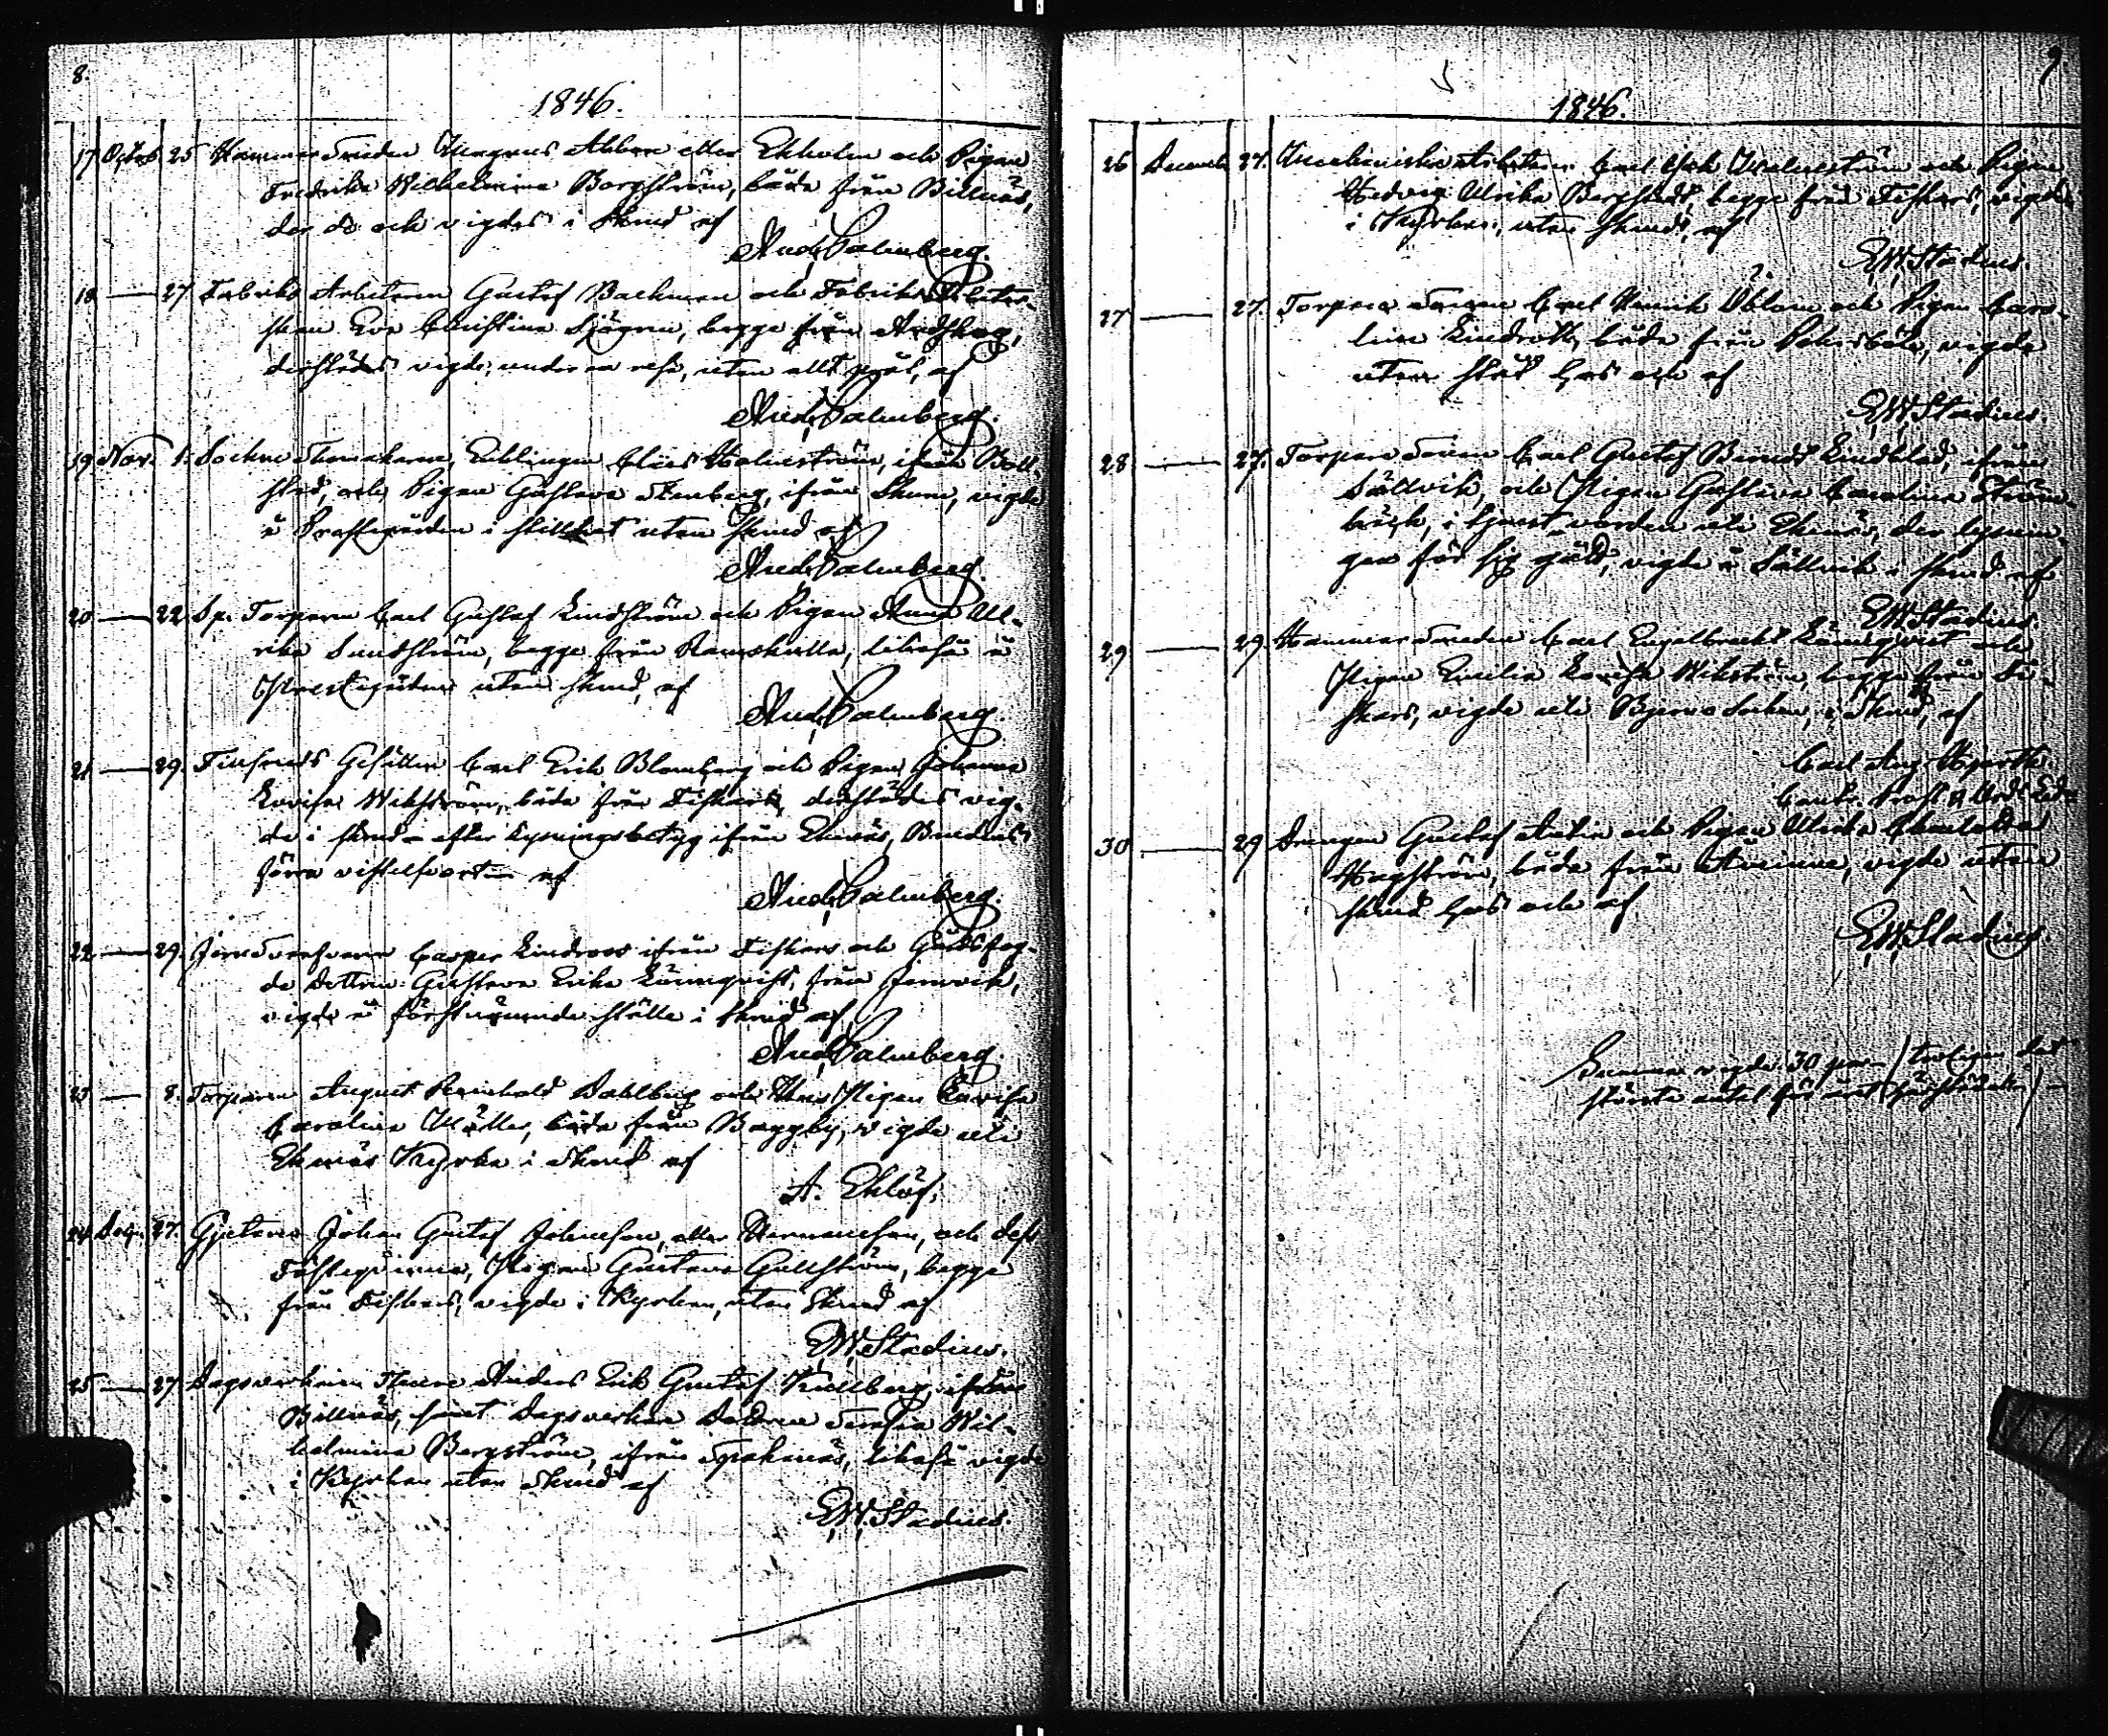 8.
1846.
17 Octob 25 Hammarsmeden Magnus Abbor eller Ekholm och Pigan
Fredrika Wilhelmina Borgström, båda från Billnäs,
der de ock vigdes i Skrud af
And. Palmberg.
18 — 27 Fabriks Arbetaren Gustaf Backman och Fabriks Arbeter-
skan Eva Christina Sjögren, begge från
derstädes vigde, under en resa, utan allt af
And. Palmberg.
19 Nov. 1. Sockne Skomakaren, Enklingen Holmström, ifrån Boll-
stad, och Pigan Gustava Stenberg, ifrån Skuru, vigde
å Prestgården i stillhet utan skrud af
And. Palmberg.
20 — 22. Sp. Torparen Carl Gustaf Lindström och Pigan Anna Ull-
rika Sundström, begge från Ramskulla, likaså å
Prestgården utan skrud, af
And. Palmberg.
21 — 29. Finsmeds Gesällen Carl Erik Blomberg och Pigan Johanna
Lovisa Wikström, båda från Fiskars, derstädes vig-
de i skrud — efter Lysningsbetyg ifrån Ekenäs, Brudens
förra vistelseort — af
And. Palmberg.
22 — 29. Casper Lindroos ifrån Fiskars och Gårdsfog-
de Dottren Gustava Erika Lönnqvist, från Jernvik,
vigde å förstnämnde ställe i skrud af
And. Palmberg.
23 — 8. Torparen August Reinhold Dahlberg och Pigan Lovisa
Carolina Möller, båda från Baggby, vigde uti
Ekenäs Kyrka i Skrud af
A. Eklöf.
24 Dec. 27. Gjutaren Johan Gustaf Johansson, eller Hermansson, och dess
Fästeqvinna, Pigan Gustava Gullström, begge
från Fiskars, vigde i Kyrkan, utan Skrud af
E.W. Stadius.
25 — 27 Dagsverkaren Anders Erik Gustaf Kullberg, ifrån
Billnäs, samt Dagsverkare Dottren Serafia Wil-
helmina Bergström, ifrån Spakanäs, likaså vigde
i Kyrkan utan Skrud af
E.W. Stadius.
9
1846.
26 December 27. Mechaniska Arbetaren Carl Malmström och Pigan
Hedvig Ulrika Bergstedt, begge från Fiskars, vigde
i Kyrkan, utan skrud, af
E.W. Stadius.
27 — 27. Torpare Sonen Carl Henrik Öblom och Pigan Caro-
lina Lindroth, båda från Pehrsböle, vigde
utan ståt hos och af
E.W. Stadius.
28 — 27. Torpare Sonen Carl Gustaf Berndt Lindblad, ifrån
Sällvik, och Pigan Gustava Carolina Ström-
bäck, i tjenst varande uti Ekenäs, der lysnin-
gen för sig gått, vigde å Sällvik i skrud af
E.W. Stadius
29 — 29. Hammarsmeden Carl Engelbrecht Lönnqvist och
Pigan Emilia Lovisa Wikström, begge från Fi-
skars, vigde uti Bjerno Socken, i Skrud, af
Carl Aug. Hjorth
30 — 29 Drengen Gustaf och Pigan Ulrika
Hagström, båda från vigde utan
skrud hos och af
E.W. Stadius
Summa vigde 30 par (troligen det
största antal för året